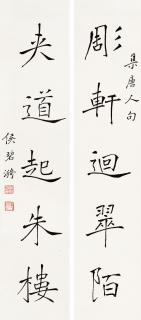 彫軒迴翠陌
集唐人句
夾道起朱樓
侯碧漪